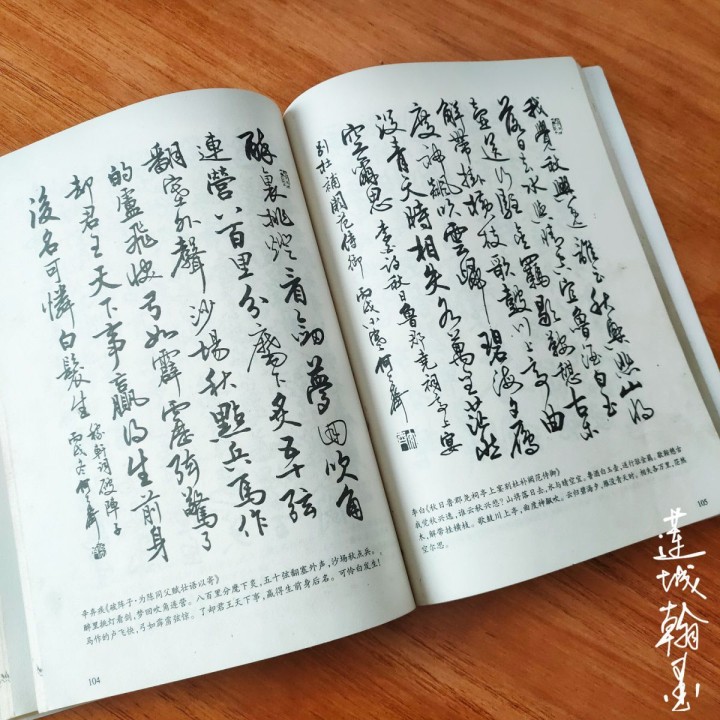 醉裏挑燈看劍夢回吹角
連營八百里分麾下炙五十弦
翻塞外聲沙場秋點兵馬作
的盧飛快弓如霹靂弦驚了
却君王天下事贏得生前身
後名可憐白髮生 稼軒詞破陣子
丙戌冬何
辛弃疾《破阵子·为陈同父赋壮语以寄》
醉里挑灯看剑，梦回吹角连营。八百里分麾下炙，五十弦翻塞外声，沙场秋点兵。
马作的卢飞快，弓如霹雳弦惊。了却君王天下事，赢得生前身后名。可怜白发生！
104
我覺秋興逸誰云秋興悲山將
落日去水與晴空宜魯酒白玉
壺送行駐金羈歇鞍憩古木
解帶掛橫枝歌鼓川上亭曲
度神飆吹雲歸碧海夕雁
沒青天時相失各萬里茫然
空爾思 李白詩秋日魯郡堯祠亭上宴
別杜補闕范侍御 丙戌小寒何
李白《秋日鲁郡尧祠亭上宴别杜补阙范侍御》
我觉秋兴逸，谁云秋兴悲？山将落日去，水与晴空宜。鲁酒白玉壶，送行驻金羁。歇鞍憩古
木，解带挂横枝。歌鼓川上亭，曲度神飙吹。云归碧海夕，雁没青天时。相失各万里，茫然
空尔思。
105
莲城翰墨